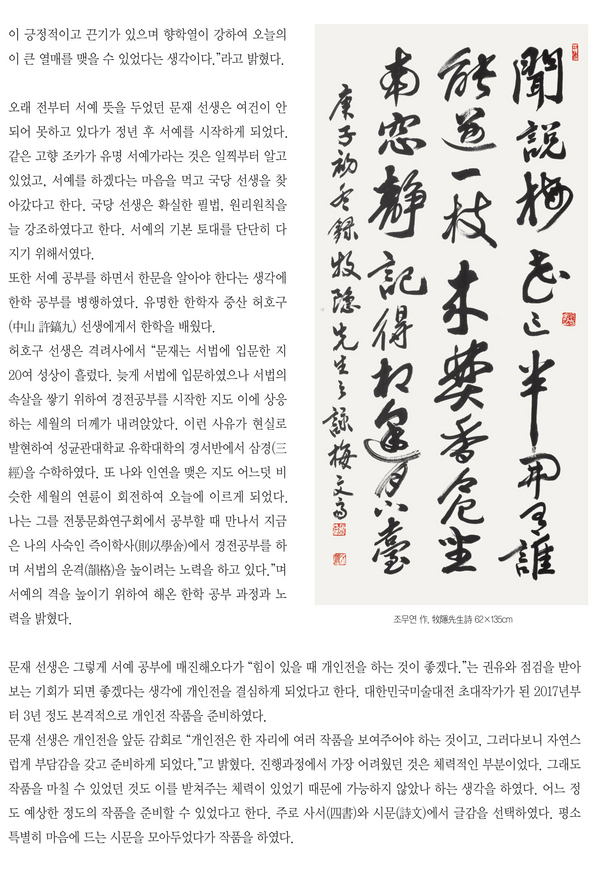 이 긍정적이고 끈기가 있으며 향학열이 강하여 오늘의
이 큰 열매를 맺을 수 있었다는 생각이다.”라고 밝혔다.
오래 전부터 서예 뜻을 두었던 문재 선생은 여건이 안
되어 못하고 있다가 정년 후 서예를 시작하게 되었다.
같은 고향 조카가 유명 서예가라는 것은 일찍부터 알고
있었고, 서예를 하겠다는 마음을 먹고 국당 선생을 찾
아갔다고 한다. 국당 선생은 확실한 필법, 원리원칙을
늘 강조하였다고 한다. 서예의 기본 토대를 단단히 다
지기 위해서였다.
또한 서예 공부를 하면서 한문을 알아야 한다는 생각에
한학 공부를 병행하였다. 유명한 한학자 중산 허호구
(中山 許鎬九) 선생에게서 한학을 배웠다.
허호구 선생은 격려사에서 “문재는 서법에 입문한 지
20여 성상이 흘렀다. 늦게 서법에 입문하였으나 서법의
속살을 쌓기 위하여 경전공부를 시작한 지도 이에 상응
하는 세월의 더께가 내려앉았다. 이런 사유가 현실로
발현하여 성균관대학교 유학대학의 경서반에서 삼경(三
經)을 수학하였다. 또 나와 인연을 맺은 지도 어느덧 비
슷한 세월의 연륜이 회전하여 오늘에 이르게 되었다.
나는 그를 전통문화연구회에서 공부할 때 만나서 지금
은 나의 사숙인 즉이학사(則以學舍)에서 경전공부를 하
며 서법의 운격(韻格)을 높이려는 노력을 하고 있다.”며
서예의 격을 높이기 위하여 해온 한학 공부 과정과 노
력을 밝혔다.
聞說梅花已半開有誰
能送一枝来焚香危坐
南窓靜記得相逢月下臺
庚子初冬錄牧隱先生之詠梅 文
조무연 作, 牧隱先生詩 62×135cm
문재 선생은 그렇게 서예 공부에 매진해오다가 “힘이 있을 때 개인전을 하는 것이 좋겠다.”는 권유와 점검을 받아
보는 기회가 되면 좋겠다는 생각에 개인전을 결심하게 되었다고 한다. 대한민국미술대전 초대작가가 된 2017년부
터 3년 정도 본격적으로 개인전 작품을 준비하였다.
문재 선생은 개인전을 앞둔 감회로 “개인전은 한 자리에 여러 작품을 보여주어야 하는 것이고, 그러다보니 자연스
럽게 부담감을 갖고 준비하게 되었다.”고 밝혔다. 진행과정에서 가장 어려웠던 것은 체력적인 부분이었다. 그래도
작품을 마칠 수 있었던 것도 이를 받쳐주는 체력이 있었기 때문에 가능하지 않았나 하는 생각을 하였다. 어느 정
도 예상한 정도의 작품을 준비할 수 있었다고 한다. 주로 사서(四書)와 시문(詩文)에서 글감을 선택하였다. 평소
특별히 마음에 드는 시문을 모아두었다가 작품을 하였다.